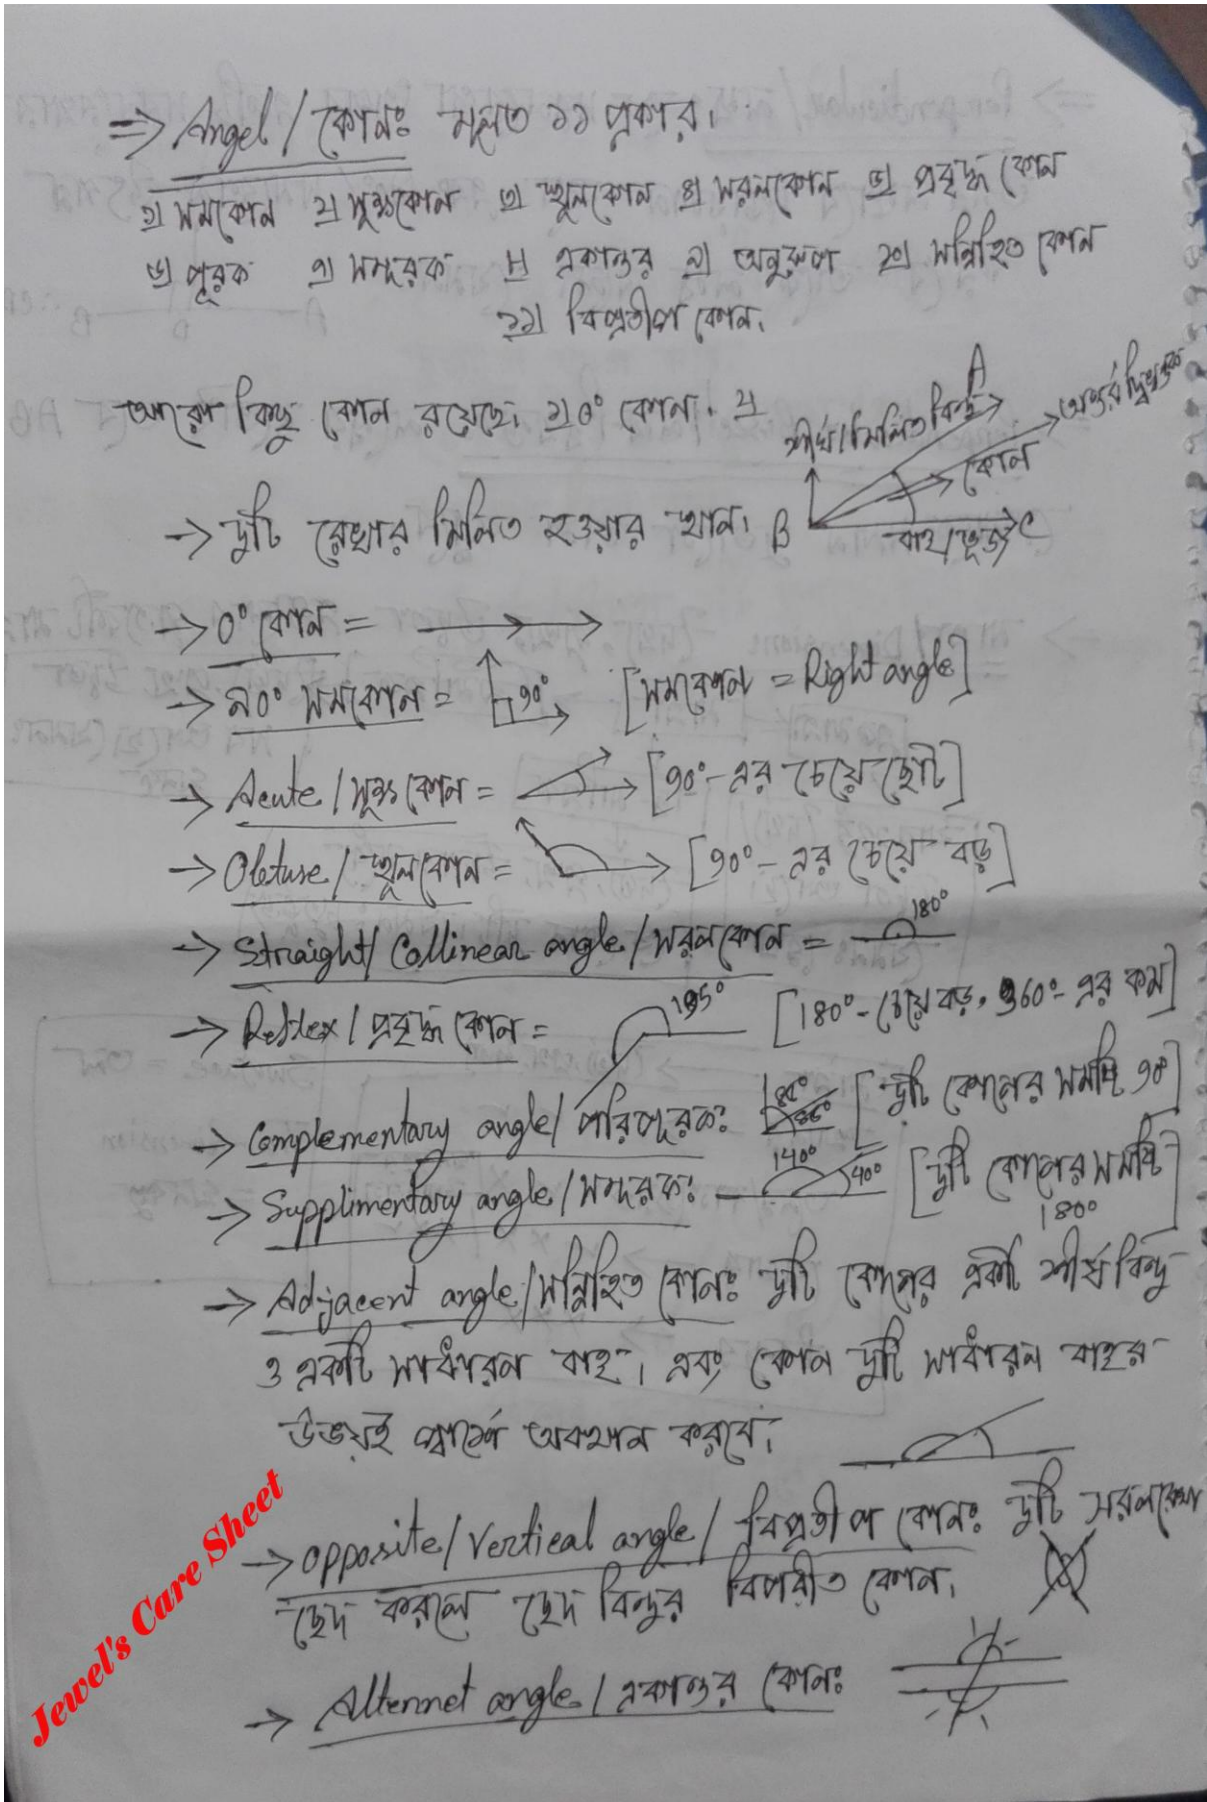 => Angel / কোনঃ মূলত ১১ প্রকার।
১) সমকোন ২) সূক্ষ্মকোন ৩) স্থুলকোন ৪) সরলকোন ৫) প্রবৃদ্ধ কোন
৬) পূরক ৭) সম্পূরক ৮) একান্তর ৯) অনুরুপ ১০) সন্নিহিত কোন
১১) বিপ্রতীপ কোন।
আরো কিছু কোন রয়েছে। ১) ০° কোন। ২)
A
শীর্ষ/মিলিত বিন্দু
অন্তর্দ্বিখন্ডক
কোন
B
বাহু/ভূজ
C
→ দুটি রেখার মিলিত হওয়ার স্থান।
→ 0° কোন =
→ ৯0° সমকোন = 90° [সমকোন = Right angle]
→ Acute / সূক্ষ্মকোন = [90°-এর চেয়ে ছোট]
→ Obtuse / স্থূলকোন = [90°- এর চেয়ে বড়]
→ Straight / Collinear angle / সরলকোন = 180°
→ Reflex / প্রবৃদ্ধ কোন = 195° [180°- চেয়ে বড়, 360°- এর কম]
→ Complementary angle / পরিপূরকঃ [দুটি কোনের সমষ্টি 90°]
→ Supplimentary angle / সম্পূরকঃ 140° 40° [দুটি কোনের সমষ্টি
180°]
→ Adjacent angle / সন্নিহিত কোনঃ দুটি কোনের একটি শীর্ষ বিন্দু
ও একটি সাধারন বাহু। এবং কোন দুটি সাধারন বাহুর
উভয়ই পার্শ্বে অবস্থান করবে।
→ Opposite / Vertical angle / বিপ্রতীপ কোনঃ দুটি সরলরেখা
ছেদ করলে ছেদ বিন্দুর বিপরীত কোন।
→ Alternet angle / একান্তর কোনঃ
Jewel's Care Sheet